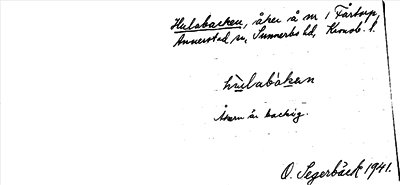 Hulabacken, åker å nr 1 Fårtorp,
Annerstad sn, Sunnerbo hd, Kronob. l.
hu̅labàkan
Åkern är backig.
O. Segerbäck 1941.